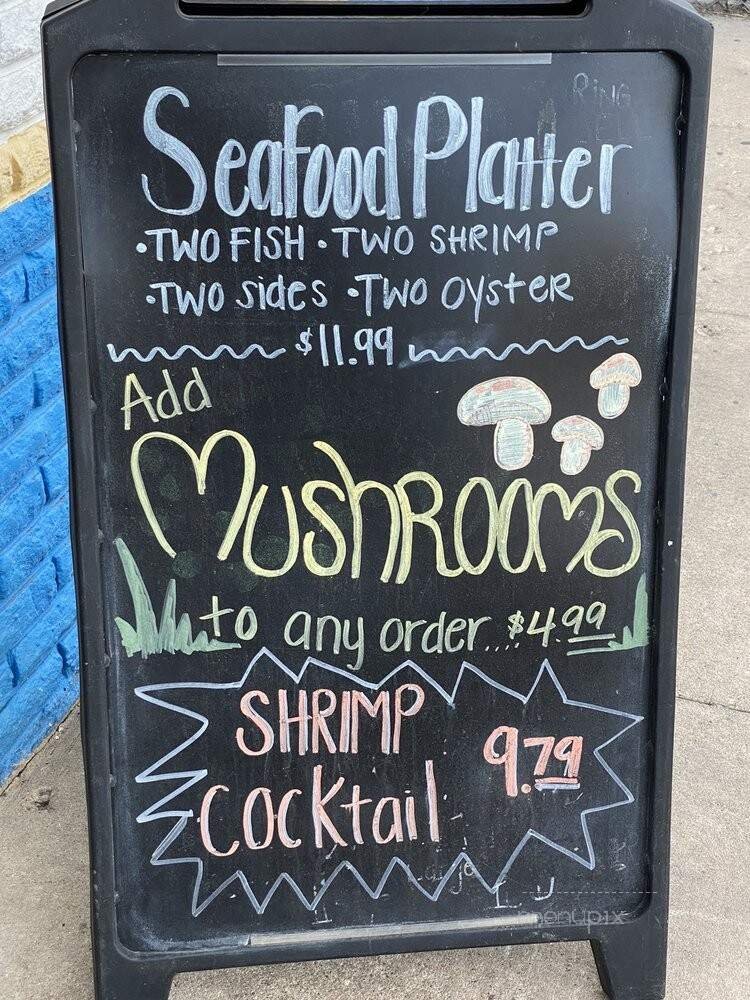 RING
Seafood Platter
•TWO FISH •TWO SHRIMP
•TWO sides •TWO oyster
$11.99
Add
MushROOMS
to any order....$4.99
SHRIMP
9.79
COCKtail
menupix